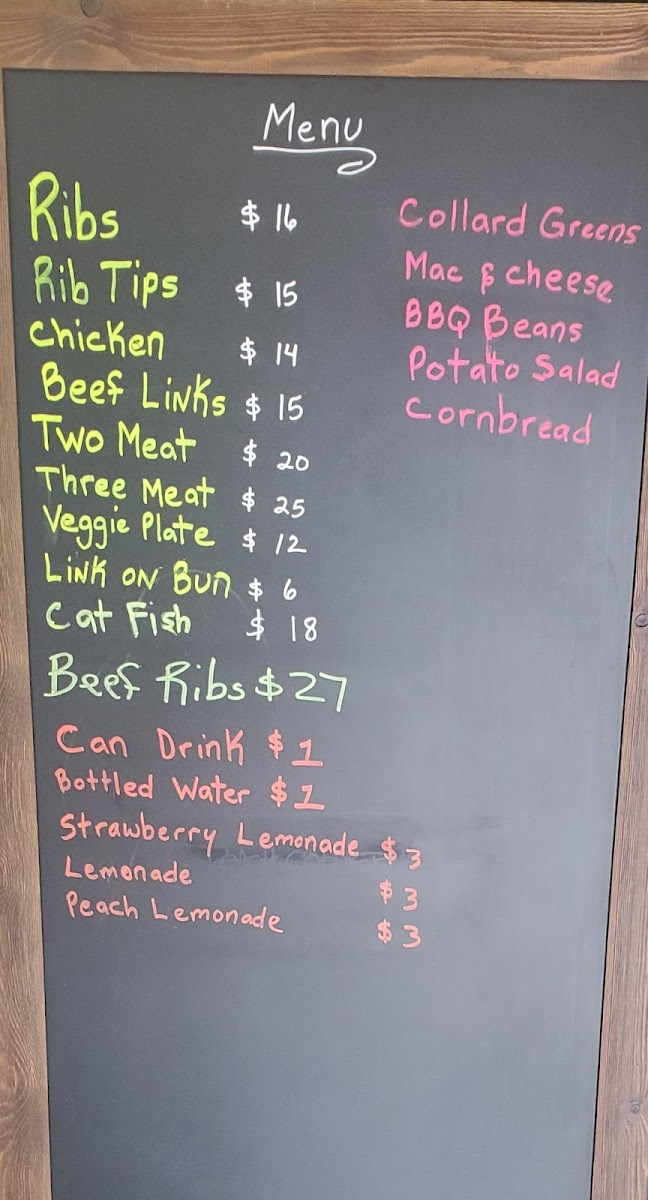 Menu
Ribs $ 16
Rib Tips $ 15
Chicken $ 14
Beef Links $ 15
Two Meat $ 20
Three Meat $ 25
Veggie Plate $ 12
Link on Bun $ 6
Cat Fish $ 18
Beef Ribs $27
Can Drink $1
Bottled Water $1
Strawberry Lemonade $3
Lemonade $3
Peach Lemonade $3
Collard Greens
Mac & cheese
BBQ Beans
Potato Salad
Cornbread